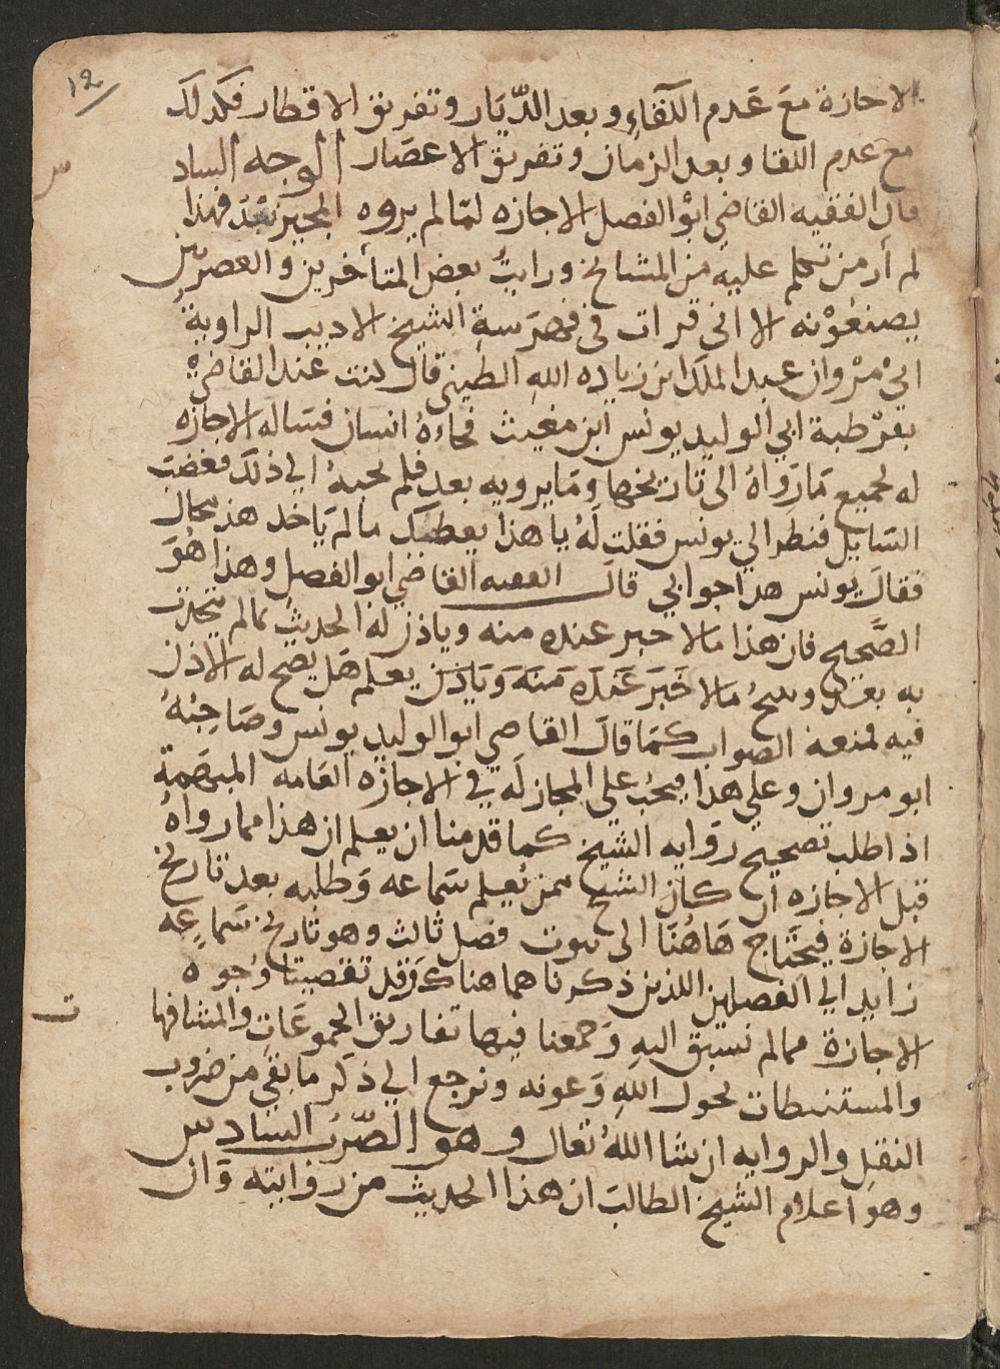 ١٢
الاجازة مع عَدم اللّقاءِ وبعد الدّيَار وتفريق الاقطار فكذلك
مع عدم اللقا وبعد الزمان وتفريق الاعصَار الوجه الساد
س
قال الفقيه القاضي ابوْ الفصل الاجازه لمّا لم يروه المجيز بَعْدُ فهذا
لم أر من تكلم عليه من المشايخ ورايتُ بعض المتأخرين والعصريين
يصنعُوْنه الا انى قرات في فهرَسة الشيخ الاديب الراوية
ابيْ مرْوان عبد الملك ابن زياده الله الطبني قال كنت عند القاضيْ
بقرْطبة ابي الوليد يونس ابن مغيث فجاءهُ انسان فسَاله الاجازه
له بجميع مَا رَواهُ الى تاريخها ومَا يرويه بعد فلم يجبهُ الي ذلك فغضبَ
السَايل فنظر الي يونس فقلت لَهُ يا هذا يعطيك ما لم يَاخد هذ محال
فقالَ يونس هذا جوابي قالَ الفقيه القاضي ابو الفصل وهذا هُوَ
الصَّحيح فان هذا مالا خبر عنده منه وياذن له الحديث بما لم يتحدث
به بعد ويبيحُ مالا خَبَرَ عَندَه مَنهَ وَيَاذَن يعلم هَل يصح له الاذن
فيه فمنعهُ الصواب كمَا قالَ القاضي ابو الوليد يونس وصَاحِبُهُ
ابو مروان وعلي هَذا فيجُب علي المجاز لَه في الاجازه العَامه المبهَمةِ
اذا طلب تصحيح رَوايه الشيخ كما قدمنا ان يعلم ان هذا مما رواهُ
قبل الاجازه ان كان الشيخ ممن يُعلم سَماعه وَطلبه بعد تاريخ
الاجازة فيحتَاج هَاهُنا الى ثبوت فصل ثالث وهو تاريخ سَماعِه
زايد الي الفصلين اللذين ذكرناهما هناك وَقد تقصيتا وُجوه
الاجازة مما لم نسبق اليهِ وَجمعنا فيها تفاريق المجموعَات والمشافها
ت
والمستنبطات بحول اللهِ وَعونه ونرجع الي ذكر ما بقي من ضروب
النقلِ والروايه ان شا اللهُ تعال وهو الضّربُ السادس
وهو اعلام الشيخ الطالبَ ان هذا الحديث من روايته وَان